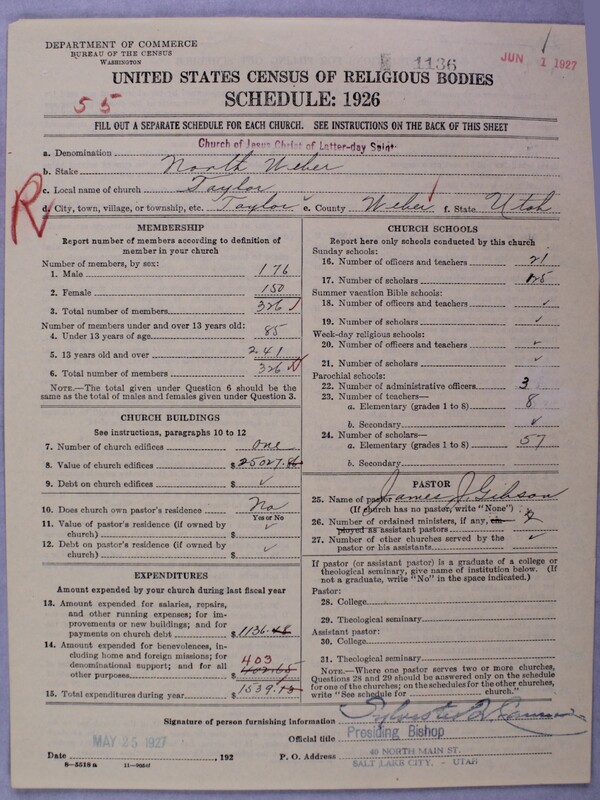 DEPARTMENT OF COMMERCE
BUREAU OF THE CENSUS
WASHINGTON
1136
JUN 1 1927
UNITED STATES CENSUS OF RELIGIOUS BODIES
SCHEDULE: 1926
55
FILL OUT A SEPARATE SCHEDULE FOR EACH CHURCH. SEE INSTRUCTIONS ON THE BACK OF THIS SHEET
a. Denomination Church of Jesus Christ of Latter-day Saint
b. Stake North Weber
c. Local name of church Taylor
R
d. City, town, village, or township, etc. Taylor e. County Weber f. State Utah
MEMBERSHIP
Report number of members according to definition of
member in your church
Number of members, by sex:
1. Male 176
2. Female 150
3. Total number of members 326
Number of members under and over 13 years old:
4. Under 13 years of age 85
5. 13 years old and over 241
6. Total number of members 326
NOTE.—The total given under Question 6 should be
the same as the total of males and females given under Question 3.
CHURCH BUILDINGS
See instructions, paragraphs 10 to 12
7. Number of church edifices one
8. Value of church edifices $25027.
9. Debt on church edifices $ ✓
10. Does church own pastor's residence? No
Yes or No
11. Value of pastor's residence (if owned by
church) $ ✓
12. Debt on pastor's residence (if owned by
church) $ ✓
EXPENDITURES
Amount expended by your church during last fiscal year
13. Amount expended for salaries, repairs,
and other running expenses; for im-
provements or new buildings; and for
payments on church debt $1136.
14. Amount expended for benevolences, in-
cluding home and foreign missions; for
denominational support; and for all
other purposes $ 403
15. Total expenditures during year $1539.
CHURCH SCHOOLS
Report here only schools conducted by this church
Sunday schools:
16. Number of officers and teachers 21
17. Number of scholars 125
Summer vacation Bible schools:
18. Number of officers and teachers ✓
19. Number of scholars ✓
Week-day religious schools:
20. Number of officers and teachers ✓
21. Number of scholars ✓
Parochial schools:
22. Number of administrative officers 3
23. Number of teachers—
a. Elementary (grades 1 to 8) 8
b. Secondary ✓
24. Number of scholars—
a. Elementary (grades 1 to 8) 57
b. Secondary
PASTOR
25. Name of pastor James J. Gibson
(If church has no pastor, write "None")
26. Number of ordained ministers, if any, em-
ployed as assistant pastors
27. Number of other churches served by the
pastor or his assistants ✓
If pastor (or assistant pastor) is a graduate of a college or
theological seminary, give name of institution below. (If
not a graduate, write "No" in the space indicated.)
Pastor:
28. College
29. Theological seminary
Assistant pastor:
30. College
31. Theological seminary
NOTE.—Where one pastor serves two or more churches,
Questions 28 and 29 should be answered only on the schedule
for one of the churches; on the schedules for the other churches,
write "See schedule for church."
Signature of person furnishing information Sylvester Q. Cannon
Official title Presiding Bishop
MAY 25 1927
Date , 192 P. O. Address 40 NORTH MAIN ST.
SALT LAKE CITY, - UTAH
8-5518a